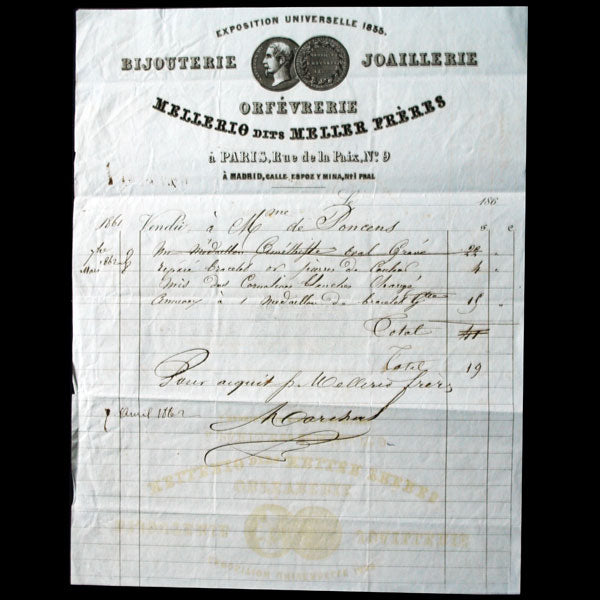 EXPOSITION UNIVERSELLE 1855.
BIJOUTERIE JOAILLERIE
ORFÉVRERIE
MELLERIO DITS MELLER FRÈRES
à PARIS, Rue de la Paix, No 9
À MADRID, CALLE ESPOZ Y MINA, No 1 PRAL
186
1861 Vendu à Mme de Poncens
7bre 9 un médaillon oval Gravé 22
Mars 1862 8 répare bracelet or 4
mis des Cornalines blanches Changé
anneaux à 1 médaillon de bracelet 15
Total 41
Total 19
Pour acquit p. Mellerio frères
7 Avril 1862